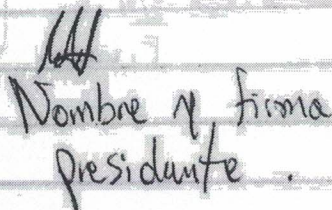 Nombre y firma
presidente.